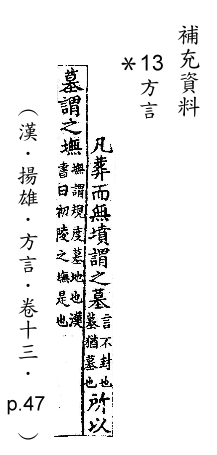 補充資料
＊13方言
凡葬而無墳謂之墓言不封也墓猶墓也所以
墓謂之墲墲謂規度墓地也漢書曰初陵之墲是也
（漢．揚雄．方言．卷十三．p.47）